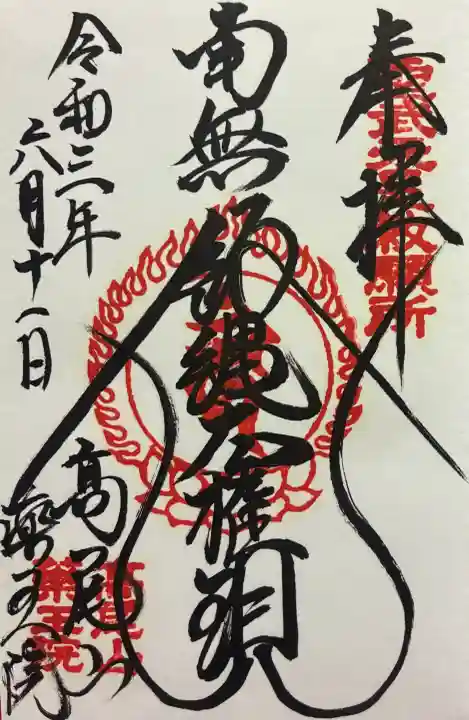 奉拝
南無飯縄大権現
令和三年
六月十一日
高尾山
薬王院
高尾山
薬王院